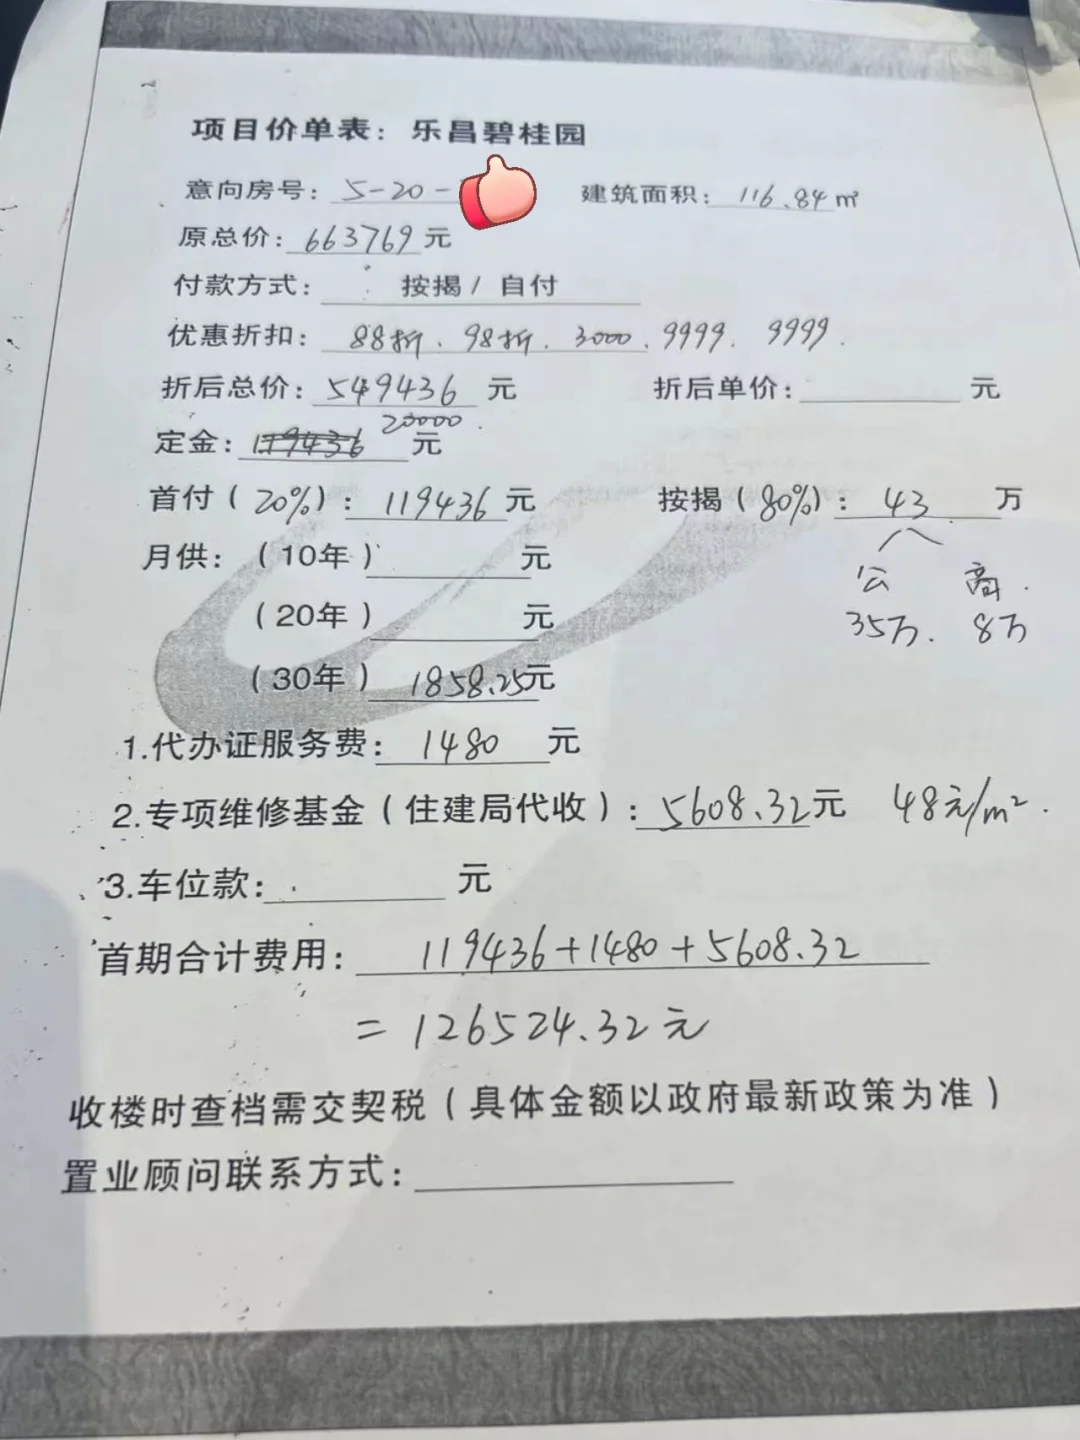 项目价单表：乐昌碧桂园
意向房号：5-20- 建筑面积：116.84㎡
原总价：663769元
付款方式： 按揭/ 自付
优惠折扣：88折、98折、3000、9999、9999.
折后总价：549436 元 折后单价： 元
20000.
定金： 119436 元
首付（20%）：119436元 按揭（80%）：43 万
月供：（10年） 元 公 商.
（20年） 元 35万. 8万
（30年） 1858.25元
1.代办证服务费：1480 元
2.专项维修基金（住建局代收）：5608.32元 48元/m².
3.车位款： 元
首期合计费用：119436+1480+5608.32
=126524.32元
收楼时查档需交契税（具体金额以政府最新政策为准）
置业顾问联系方式：